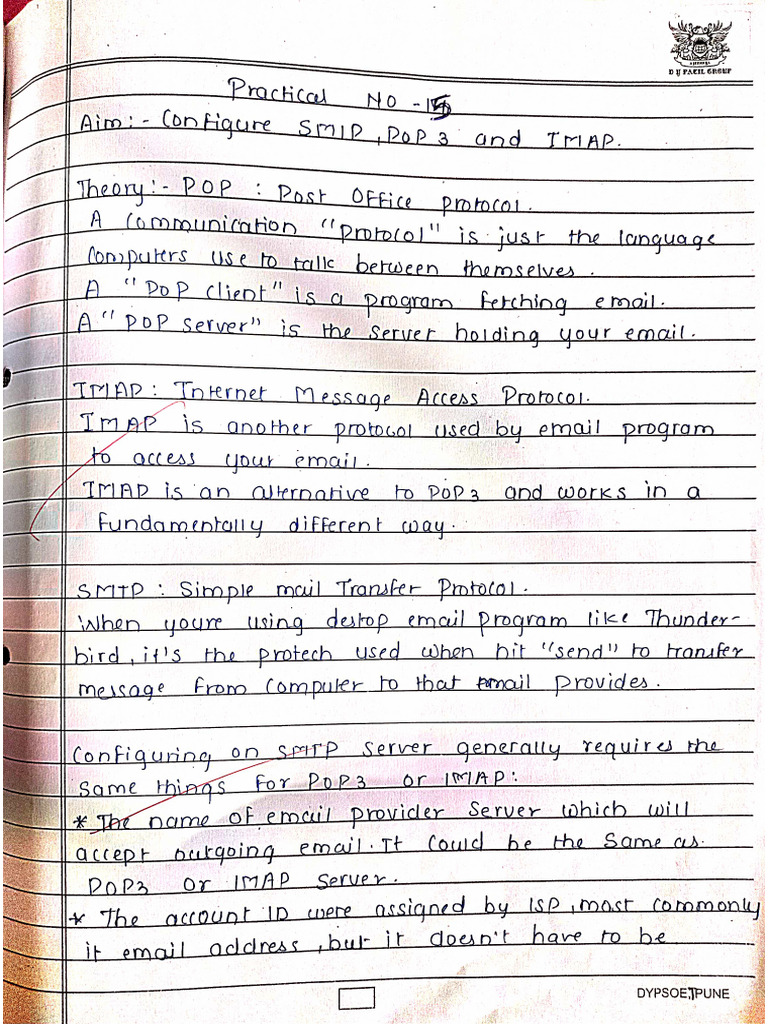 D Y PATIL GROUP
Practical No - 15
Aim:- Configure SMIP, POP3 and IMAP.
Theory:- POP : Post Office Protocol.
A communication "protocol" is just the language
computers use to talk between themselves.
A "POP client" is a program fetching email.
A "POP server" is the server holding your email.
IMAP: Internet Message Access Protocol.
IMAP is another protocol used by email program
to access your email.
IMAP is an alternative to POP3 and works in a
fundamentally different way.
SMTP : Simple mail Transfer Protocol.
When youre using destop email program like Thunder-
bird, it's the protech used when hit "send" to transfer
message from computer to that email provides.
Configuring on SMTP server generally requires the
same things for POP3 or IMAP:
* The name of email provider server which will
accept outgoing email. It could be the same as
POP3 or IMAP server.
* The account ID were assigned by ISP, most commonly
it email address, but it doesn't have to be
DYPSOET, PUNE